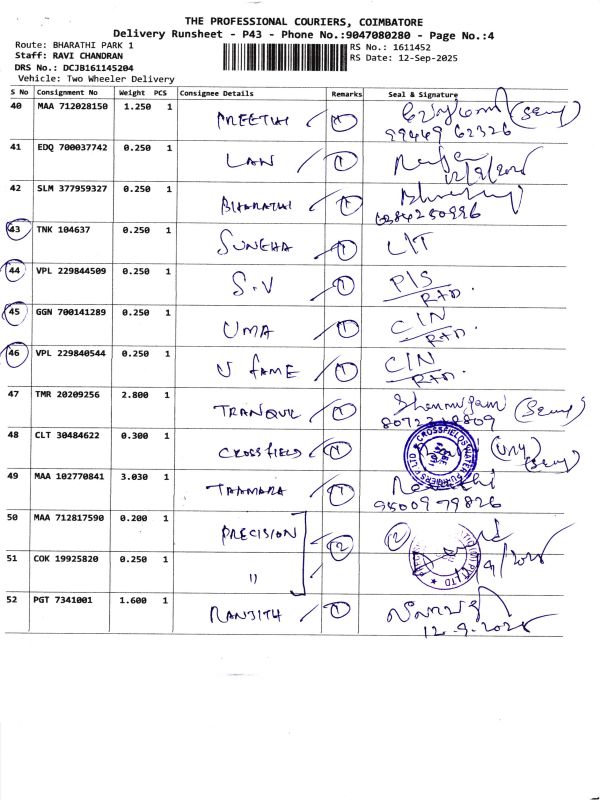 THE PROFESSIONAL COURIERS, COIMBATORE
Delivery Runsheet - P43 - Phone No.:9047080280 - Page No.:4
Route: BHARATHI PARK 1
Staff: RAVI CHANDRAN
DRS No.: DCJB161145204
Vehicle: Two Wheeler Delivery
RS No.: 1611452
RS Date: 12-Sep-2025
S No Consignment No Weight PCS Consignee Details Remarks Seal & Signature
40 MAA 712028150 1.250 1 PREETHI 1
99449 62326
41 EDQ 700037742 0.250 1 LAN 1
12/9/2025
42 SLM 377959327 0.250 1 BHARATHI 1
43 TNK 104637 0.250 1 SUNEHA 1
44 VPL 229844509 0.250 1 S.V 1 P/S
RTD.
45 GGN 700141289 0.250 1 UMA 1 C/N
RTD.
46 VPL 229840544 0.250 1 V FAME 1 C/N
RTD.
47 TMR 20209256 2.800 1 TRANQUIL 1 Shanmugam
48 CLT 30484622 0.300 1 CROSSFIELD 1
49 MAA 102770841 3.030 1 TAAMARA 1
9500979826
50 MAA 712817590 0.200 1 PRECISION 2 2
51 COK 19925820 0.250 1 "
52 PGT 7341001 1.600 1 RANJITH 1
12.9.2025